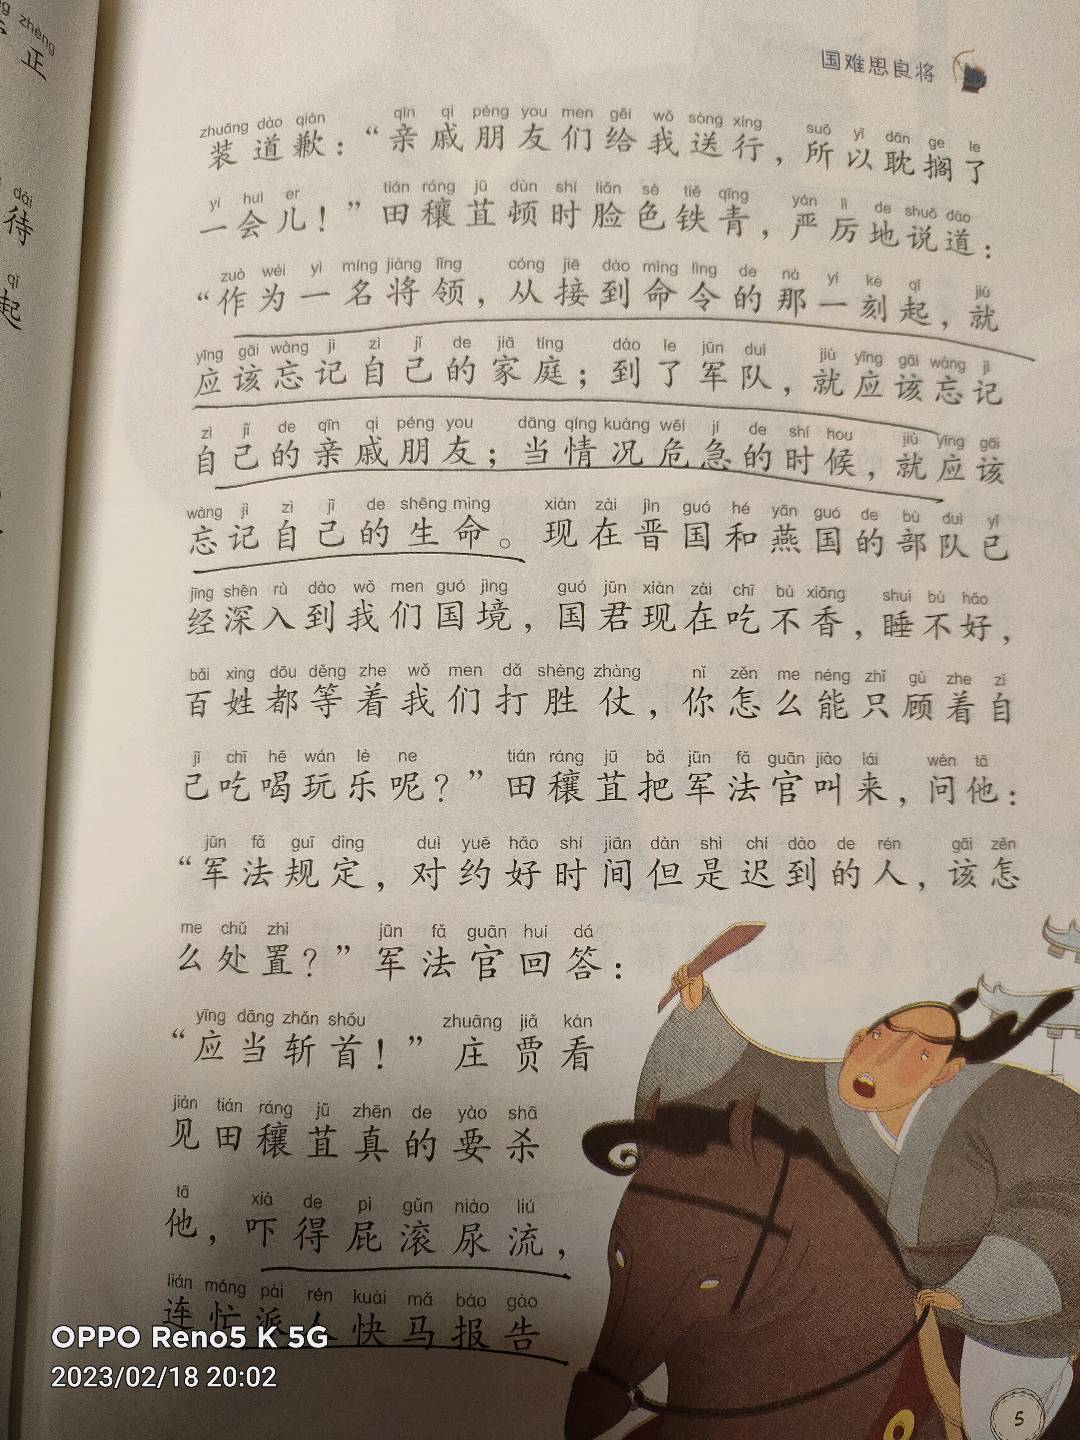 zhèng
正
dài
待
qǐ
起
国难思良将
zhuāng dào qiàn qīn qi péng you men gěi wǒ sòng xíng suǒ yǐ dān ge le
装道歉：“亲戚朋友们给我送行，所以耽搁了
yí huì er tián ráng jū dùn shí liǎn sè tiě qīng yán lì de shuō dào
一会儿！”田穰苴顿时脸色铁青，严厉地说道：
zuò wéi yì míng jiàng lǐng cóng jiē dào mìng lìng de nà yí kè qǐ jiù
“作为一名将领，从接到命令的那一刻起，就
yīng gāi wàng jì zì jǐ de jiā tíng dào le jūn duì jiù yīng gāi wàng jì
应该忘记自己的家庭；到了军队，就应该忘记
zì jǐ de qīn qi péng you dāng qíng kuàng wēi jí de shí hou jiù yīng gāi
自己的亲戚朋友；当情况危急的时候，就应该
wàng jì zì jǐ de shēng mìng xiàn zài jìn guó hé yān guó de bù duì yǐ
忘记自己的生命。现在晋国和燕国的部队已
jīng shēn rù dào wǒ men guó jìng guó jūn xiàn zài chī bù xiāng shuì bù hǎo
经深入到我们国境，国君现在吃不香，睡不好，
bǎi xìng dōu děng zhe wǒ men dǎ shèng zhàng nǐ zěn me néng zhǐ gù zhe zì
百姓都等着我们打胜仗，你怎么能只顾着自
jǐ chī hē wán lè ne tián ráng jū bǎ jūn fǎ guān jiào lái wèn tā
己吃喝玩乐呢？”田穰苴把军法官叫来，问他：
jūn fǎ guī dìng duì yuē hǎo shí jiān dàn shì chí dào de rén gāi zěn
“军法规定，对约好时间但是迟到的人，该怎
me chǔ zhì jūn fǎ guān huí dá
么处置？”军法官回答：
yīng dāng zhǎn shǒu zhuāng jiǎ kàn
“应当斩首！”庄贾看
jiàn tián ráng jū zhēn de yào shā
见田穰苴真的要杀
tā xià de pì gǔn niào liú
他，吓得屁滚尿流，
lián máng pài rén kuài mǎ bào gào
连忙派人快马报告
OPPO Reno5 K 5G
2023/02/18 20:02
5